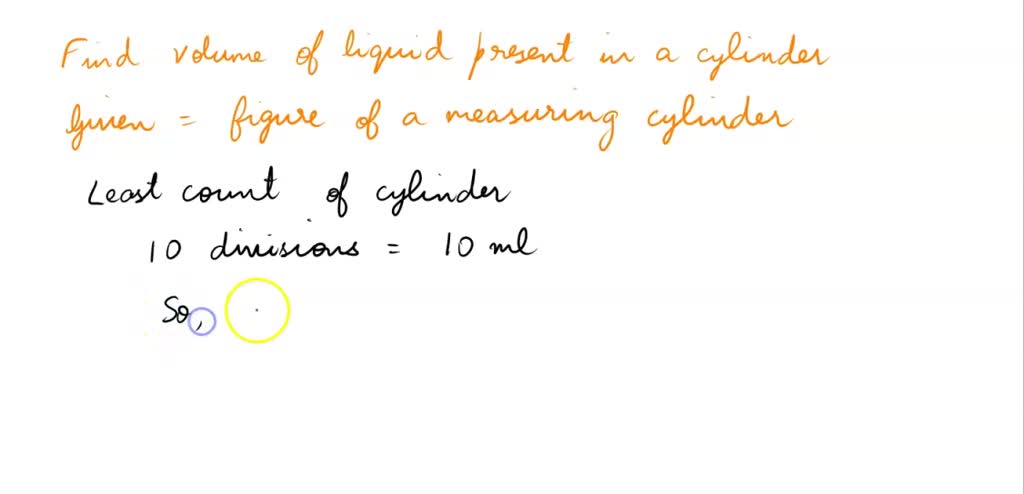 Find volume of liquid present in a cylinder
Given = figure of a measuring cylinder
Least count of cylinder
10 divisions = 10 ml
So,